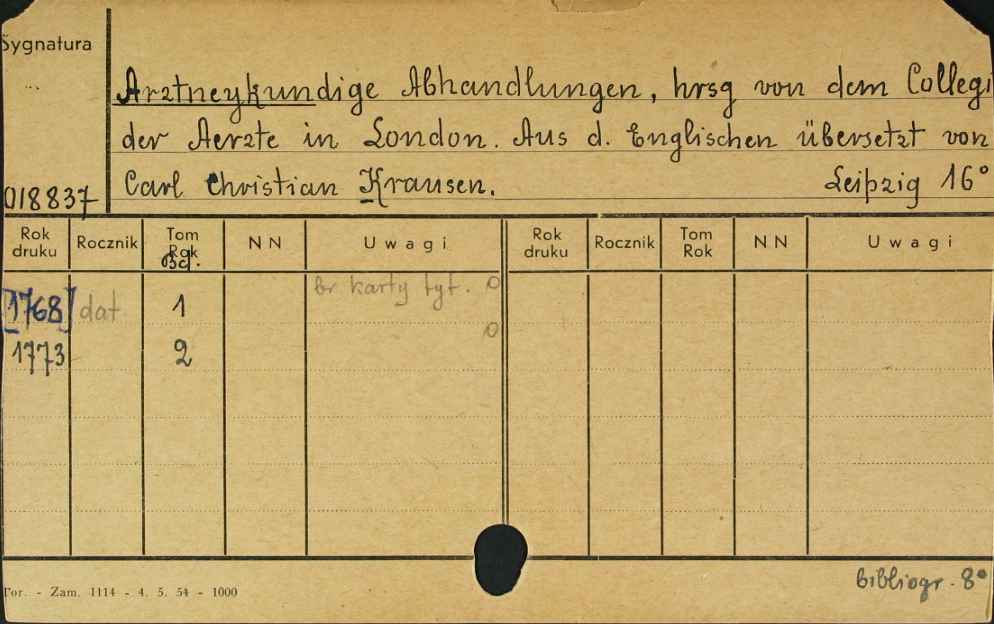 Sygnatura
Arztneykundige Abhandlungen, hrsg von dem Collegi
der Aerzte in London. Aus d. Englischen übersetzt von
018837 Carl Christian Krausen. Leipzig 16°
Rok druku Rocznik Tom Rok Bd. N N Uwagi Rok druku Rocznik Tom Rok N N Uwagi
br karty tyt. 0
[1768] dat 1
0
1773 2
bibliogr. 8°
Tor. - Zam. 1114 - 4. 5. 54 - 1000